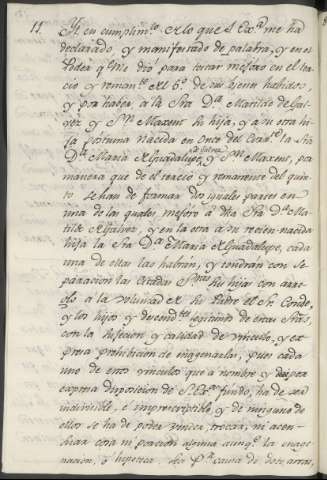 11. Yt. en cumplim.to de lo que S. Ex.a me ha
declarado, y manifestado de palabra, y en el
Poder q.e me dio para testar mejoro en el ter-
cio y reman.te del 5.o de sus bienes habidos
y por haber, a la Sra D.a Matilde de Gal-
vez y S.n Maxent su hija, y a su otra hi-
ja postuma nacida en once del corr.te la Sra
D.a Maria de Guadalupe, de Galvez y S.n Maxent, por
manera que de el tercio y remanente del quin-
to se han de formar dos iguales partes en
una de las quales mejoro a dha Sra D.a Ma-
tilde de Galvez, y en la otra a su recien nacida
hija la Sra D.a Maria de Guadalupe, cada
una de ellas las habrán, y tendrán con se-
paracion las citadas S.ras sus hijas con arre-
glo a la voluntad de su Padre el Sr. Conde,
y los hijos y descend.tes legitimos de estas Sras,
con la sujecion y calidad de vinculo, y ex-
presa prohibicion de enagenarlas, pues cada
uno de estos vinculos que a nombre y de ex-
presa disposicion de S. Ex.a fundo, ha de ser
indivisible, e imprescriptible, y de ninguno de
ellos se ha de poder vender, trocar, ni acen-
suar cosa ni porcion alguna aunq.e la enage-
nacion, o hipoteca sea p.r causa de dote, arras,